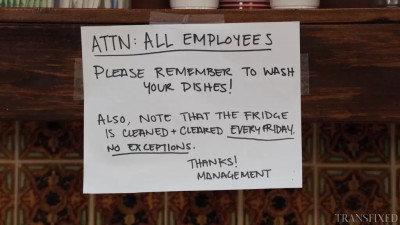 ATTN: ALL EMPLOYEES
PLEASE REMEMBER TO WASH
YOUR DISHES!
ALSO, NOTE THAT THE FRIDGE
IS CLEANED + CLEARED EVERY FRIDAY.
NO EXCEPTIONS.
THANKS!
MANAGEMENT
TRANSFIXED